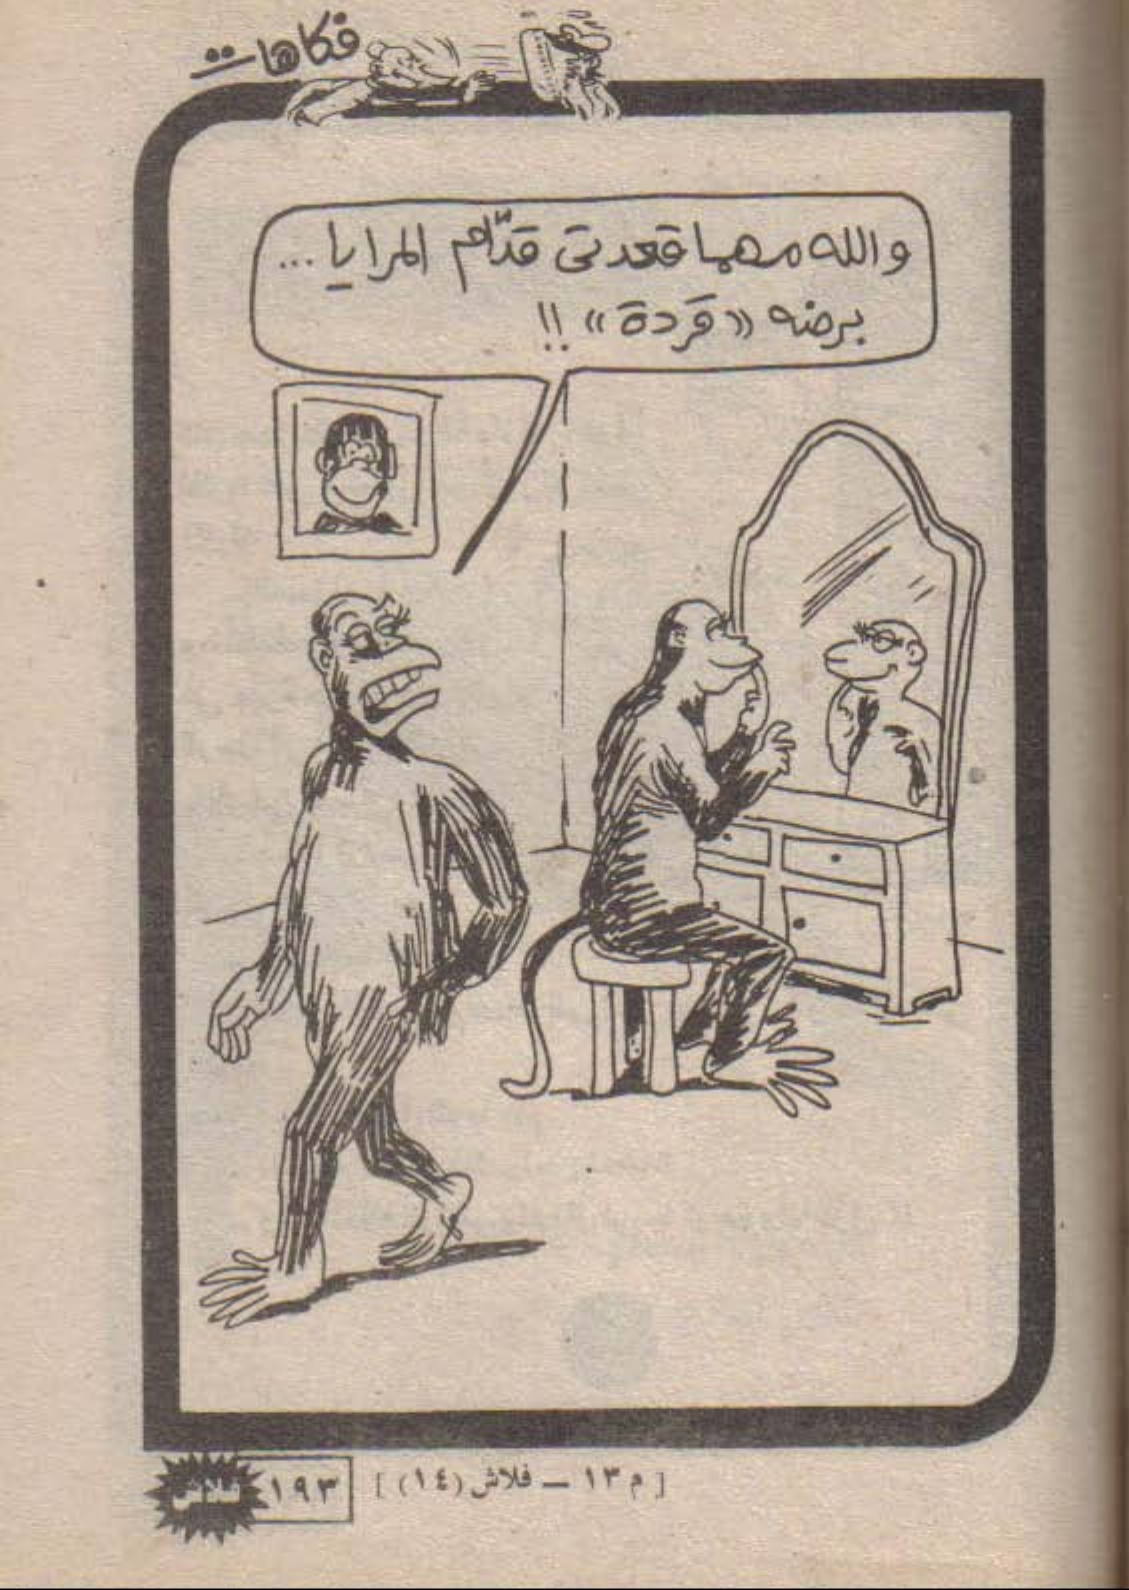 فكاهات
والله مهما قعدتى قدّام المرايا ...
برضه «قردة» !!
[ م ١٣ ــ فلاش (١٤) ]
١٩٣
فلاش